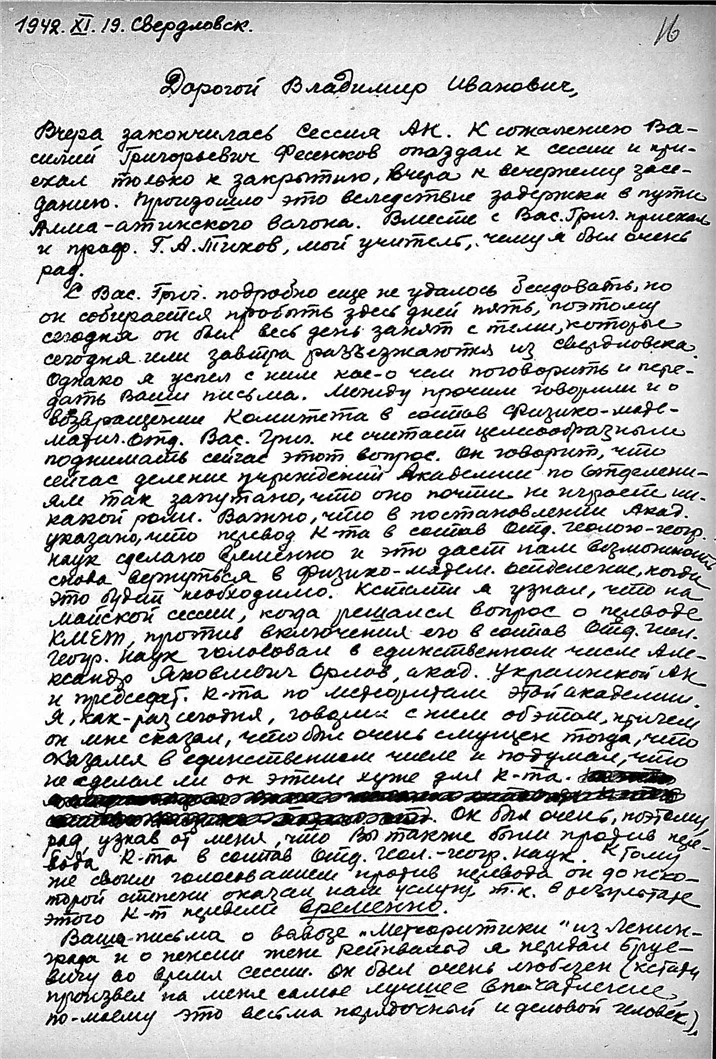 1942. XI. 19. Свердловск.
16
Дорогой Владимир Иванович,
Вчера закончилась сессия АН. К сожалению Ва-
силий Григорьевич Фесенков опоздал к сессии и при-
ехал только к закрытию, вчера к вечернему засе-
данию. Произошло это вследствие задержки в пути
Алма-атинского вагона. Вместе с Вас. Григ. приехал
и проф. Г.А. Тихов, мой учитель, чему я был очень
рад.
С Вас. Григ. подробно еще не удалось беседовать, но
он собирается пробыть здесь дней пять, поэтому
сегодня он был весь день занят с теми, которые
сегодня или завтра разъезжаются из Свердловска.
Однако я успел с ним кое-о чем поговорить и пере-
дать Ваши письма. Между прочим говорили и о
возвращении Комитета в состав Физико-мате-
матич. Отд. Вас. Григ. не считает целесообразным
поднимать сейчас этот вопрос. Он говорит, что
сейчас деление учреждений Академии по отделени-
ям так запутано, что оно почти не играет ни-
какой роли. Важно, что в постановлении Акад.
указано, что перевод К-та в состав Отд. геолого-геогр.
наук сделано временно и это даст нам возможность
снова вернуться в Физико-матем. отделение, когда
это будет необходимо. Кстати я узнал, что на
майской сессии, когда решался вопрос о переводе
КМЕТ, против включения его в состав Отд. геол.
геогр. наук голосовал в единственном числе Але-
ксандр Яковлевич Орлов, акад. Украинской АН
и председат. К-та по метеоритам этой академии.
Я, как-раз сегодня, говорил с ним об этом, причем
он мне сказал, что был очень смущен тогда, что
оказался в единственном числе и подумал, что
не сделал ли он этим хуже для К-та.
Он был очень, поэтому,
рад, узнав от меня, что Вы также были против пере-
вода К-та в состав Отд. геол.-геогр. наук. К тому
же своим голосованием против перевода он до неко-
торой степени оказал нам услугу, т.к. в результате
этого К-т перевели временно.
Ваши письма о вывозе „Метеоритики" из Ленин-
града и о пенсии жене Рейнвальд я передал Бруе-
вичу во время сессии. Он был очень любезен (кстати
произвел на меня самое лучшее впечатление,
по-моему это весьма порядочный и деловой человек),